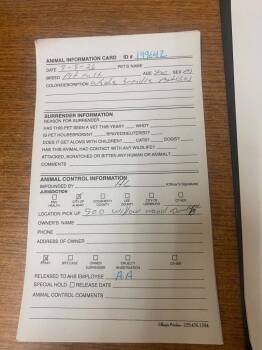 ANIMAL INFORMATION CARD ID # 199642
DATE PET'S NAME
BREED Pit Bull AGE SEX M
COLOR/DESCRIPTION White brindle patches
SURRENDER INFORMATION
REASON FOR SURRENDER
HAS THIS PET SEEN A VET THIS YEAR? WHY?
IS PET HOUSEBROKEN? SPAYED/NEUTERED?
DOES IT GET ALONG WITH CHILDREN? CATS? DOGS?
HAS THIS ANIMAL HAD CONTACT WITH ANY WILDLIFE?
ATTACKED, SCRATCHED OR BITTEN ANY HUMAN OR ANIMAL?
COMMENTS
ANIMAL CONTROL INFORMATION
IMPOUNDED BY (Officer's Signature)
JURISDICTION
HEALTH CITY OF COUNTY OTHER
LOCATION PICK UP 500
OWNER'S NAME
PHONE
ADDRESS OF OWNER
STRAY BITE CASE OWNER SURRENDER INVESTIGATION OTHER
RELEASED TO AHS EMPLOYEE AA
SPECIAL HOLD RELEASE DATE
ANIMAL CONTROL COMMENTS